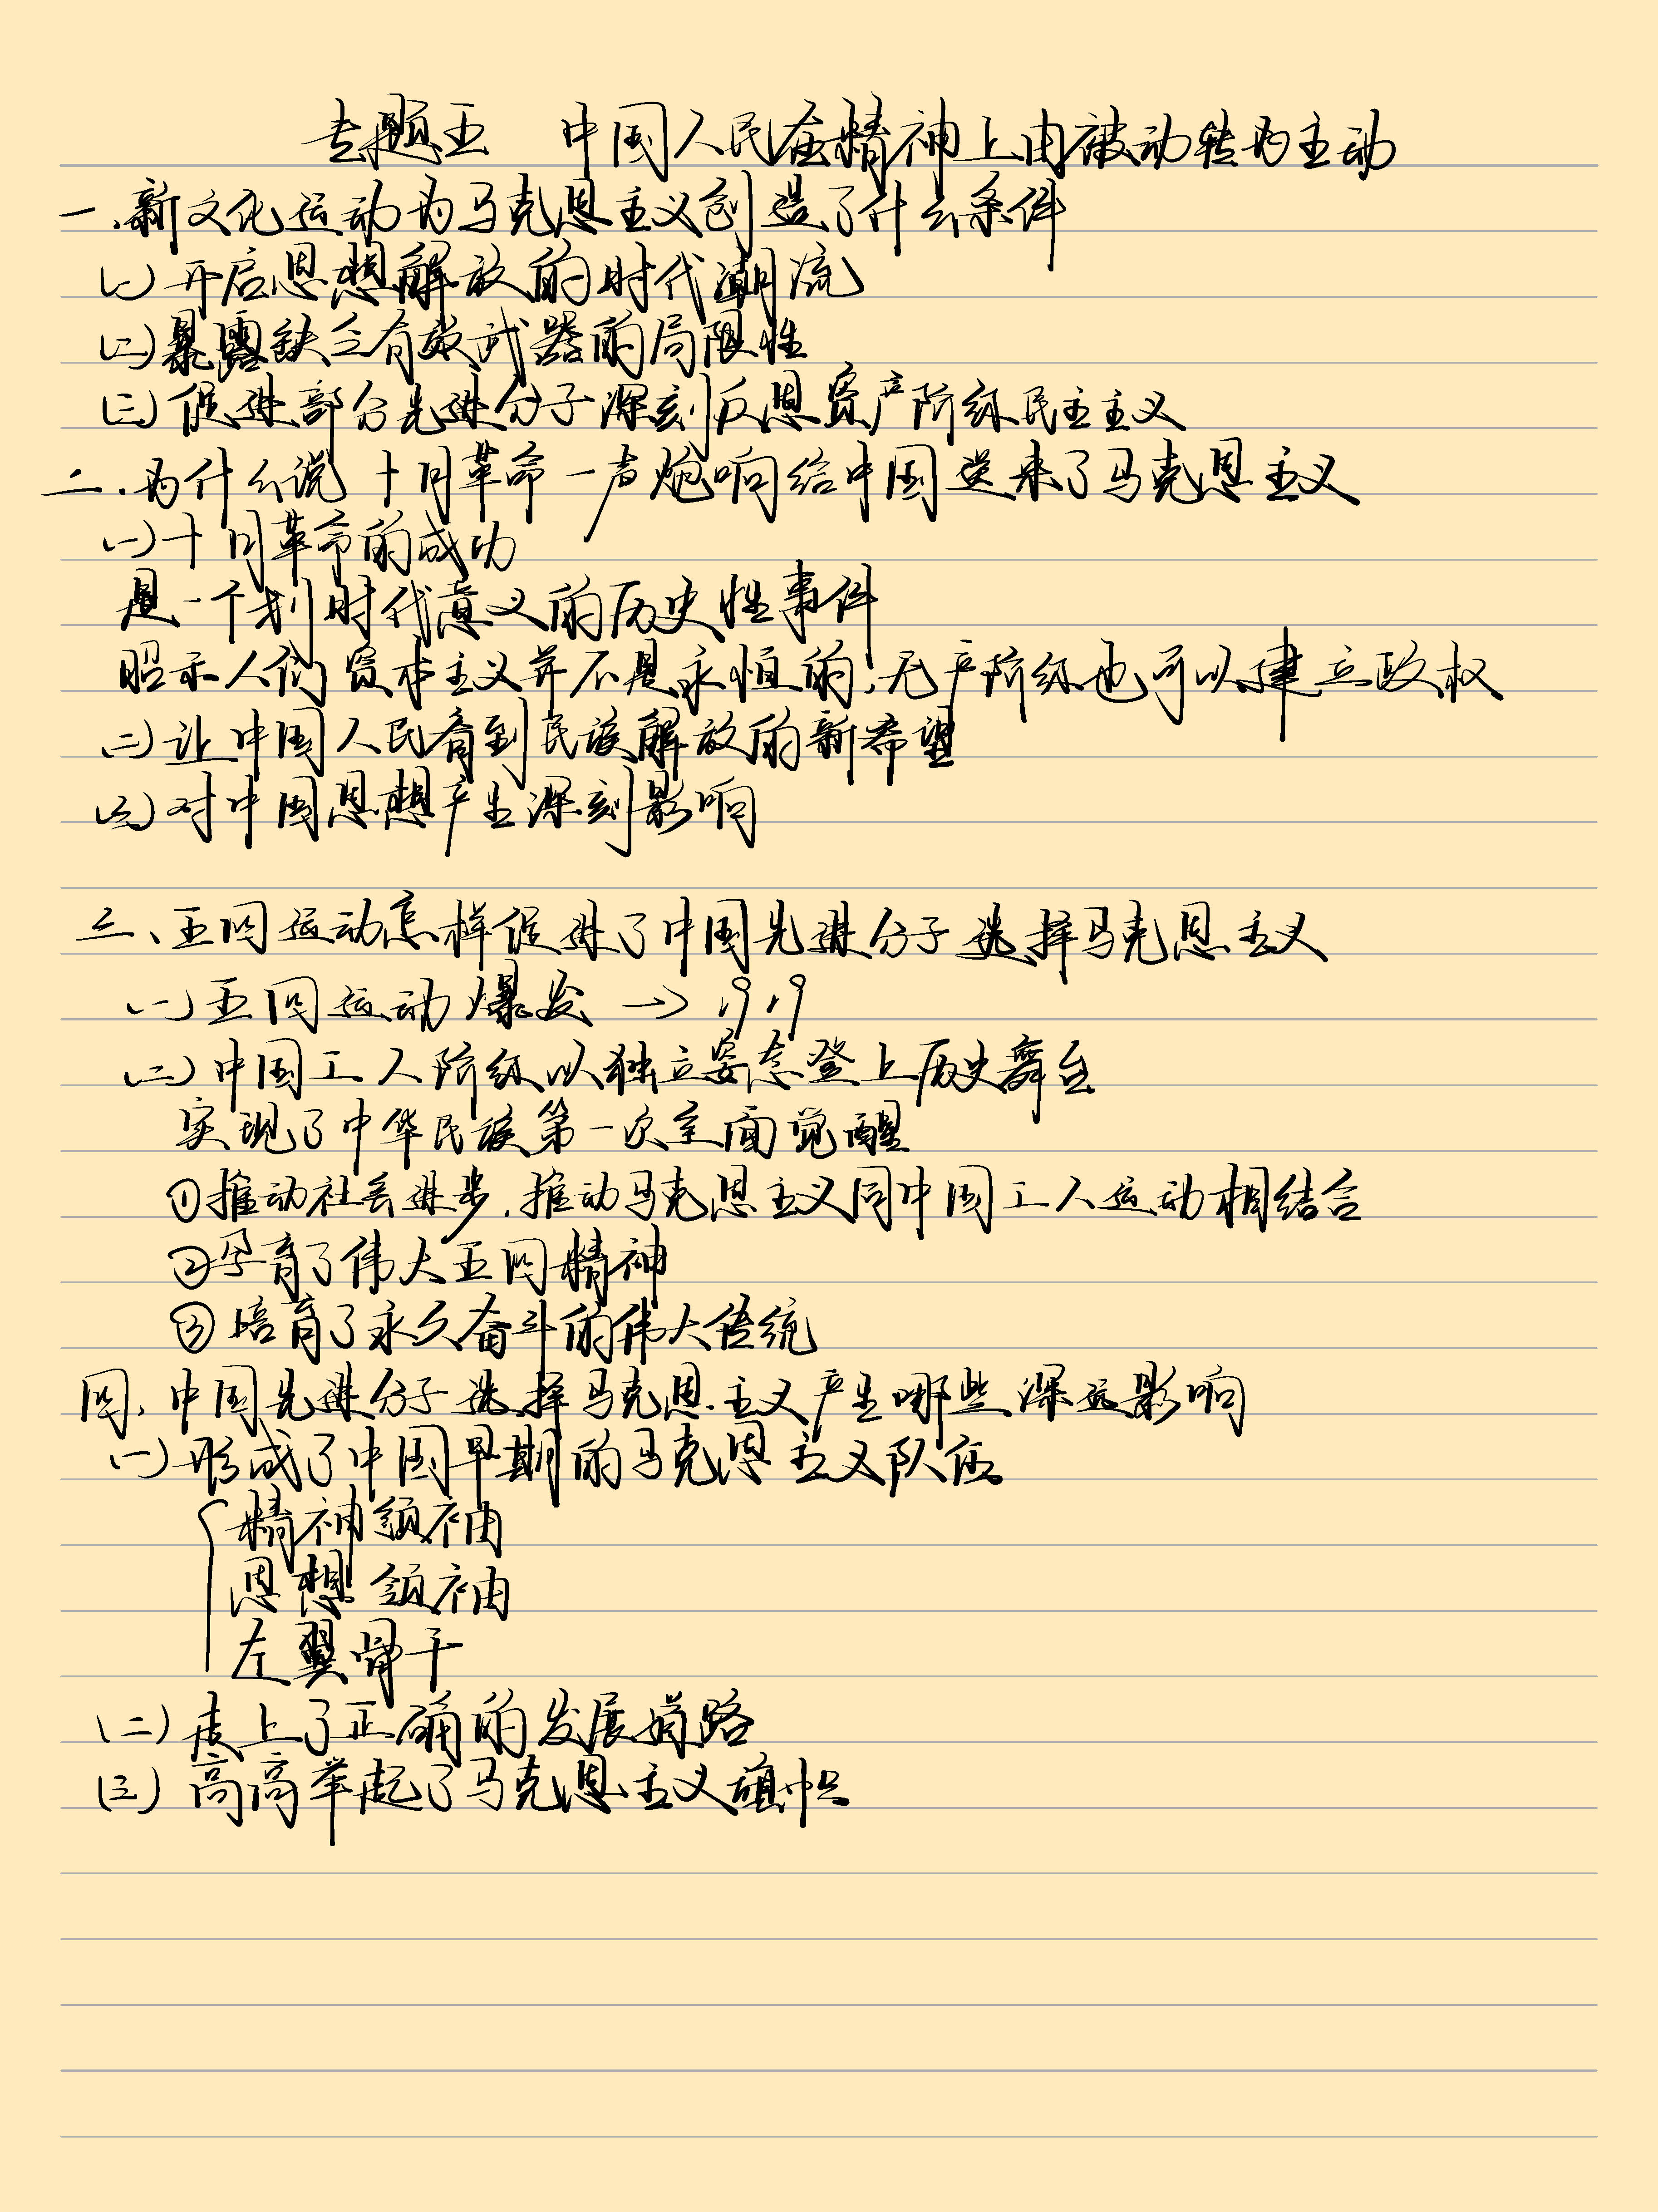 专题五 中国人民在精神上由被动转为主动
一.新文化运动为马克思主义创造了什么条件
(一)开启思想解放的时代潮流
(二)暴露缺乏有效武器的局限性
(三)促进部分先进分子深刻反思资产阶级民主主义
二.为什么说十月革命一声炮响给中国送来了马克思主义
(一)十月革命的成功
是一个划时代意义的历史性事件
昭示人们资本主义并不是永恒的,无产阶级也可以建立政权
(二)让中国人民看到民族解放的新希望
(三)对中国思想产生深刻影响
三、五四运动怎样促进了中国先进分子选择马克思主义
(一)五四运动爆发→1919
(二)中国工人阶级以独立姿态登上历史舞台
实现了中华民族第一次全面觉醒
①推动社会进步,推动马克思主义同中国工人运动相结合
②孕育了伟大五四精神
③培育了永久奋斗的伟大传统
四、中国先进分子选择马克思主义产生哪些深远影响
(一)形成了中国早期的马克思主义队伍
精神领袖
思想领袖
左翼骨干
(二)走上了正确的发展道路
(三)高高举起了马克思主义旗帜